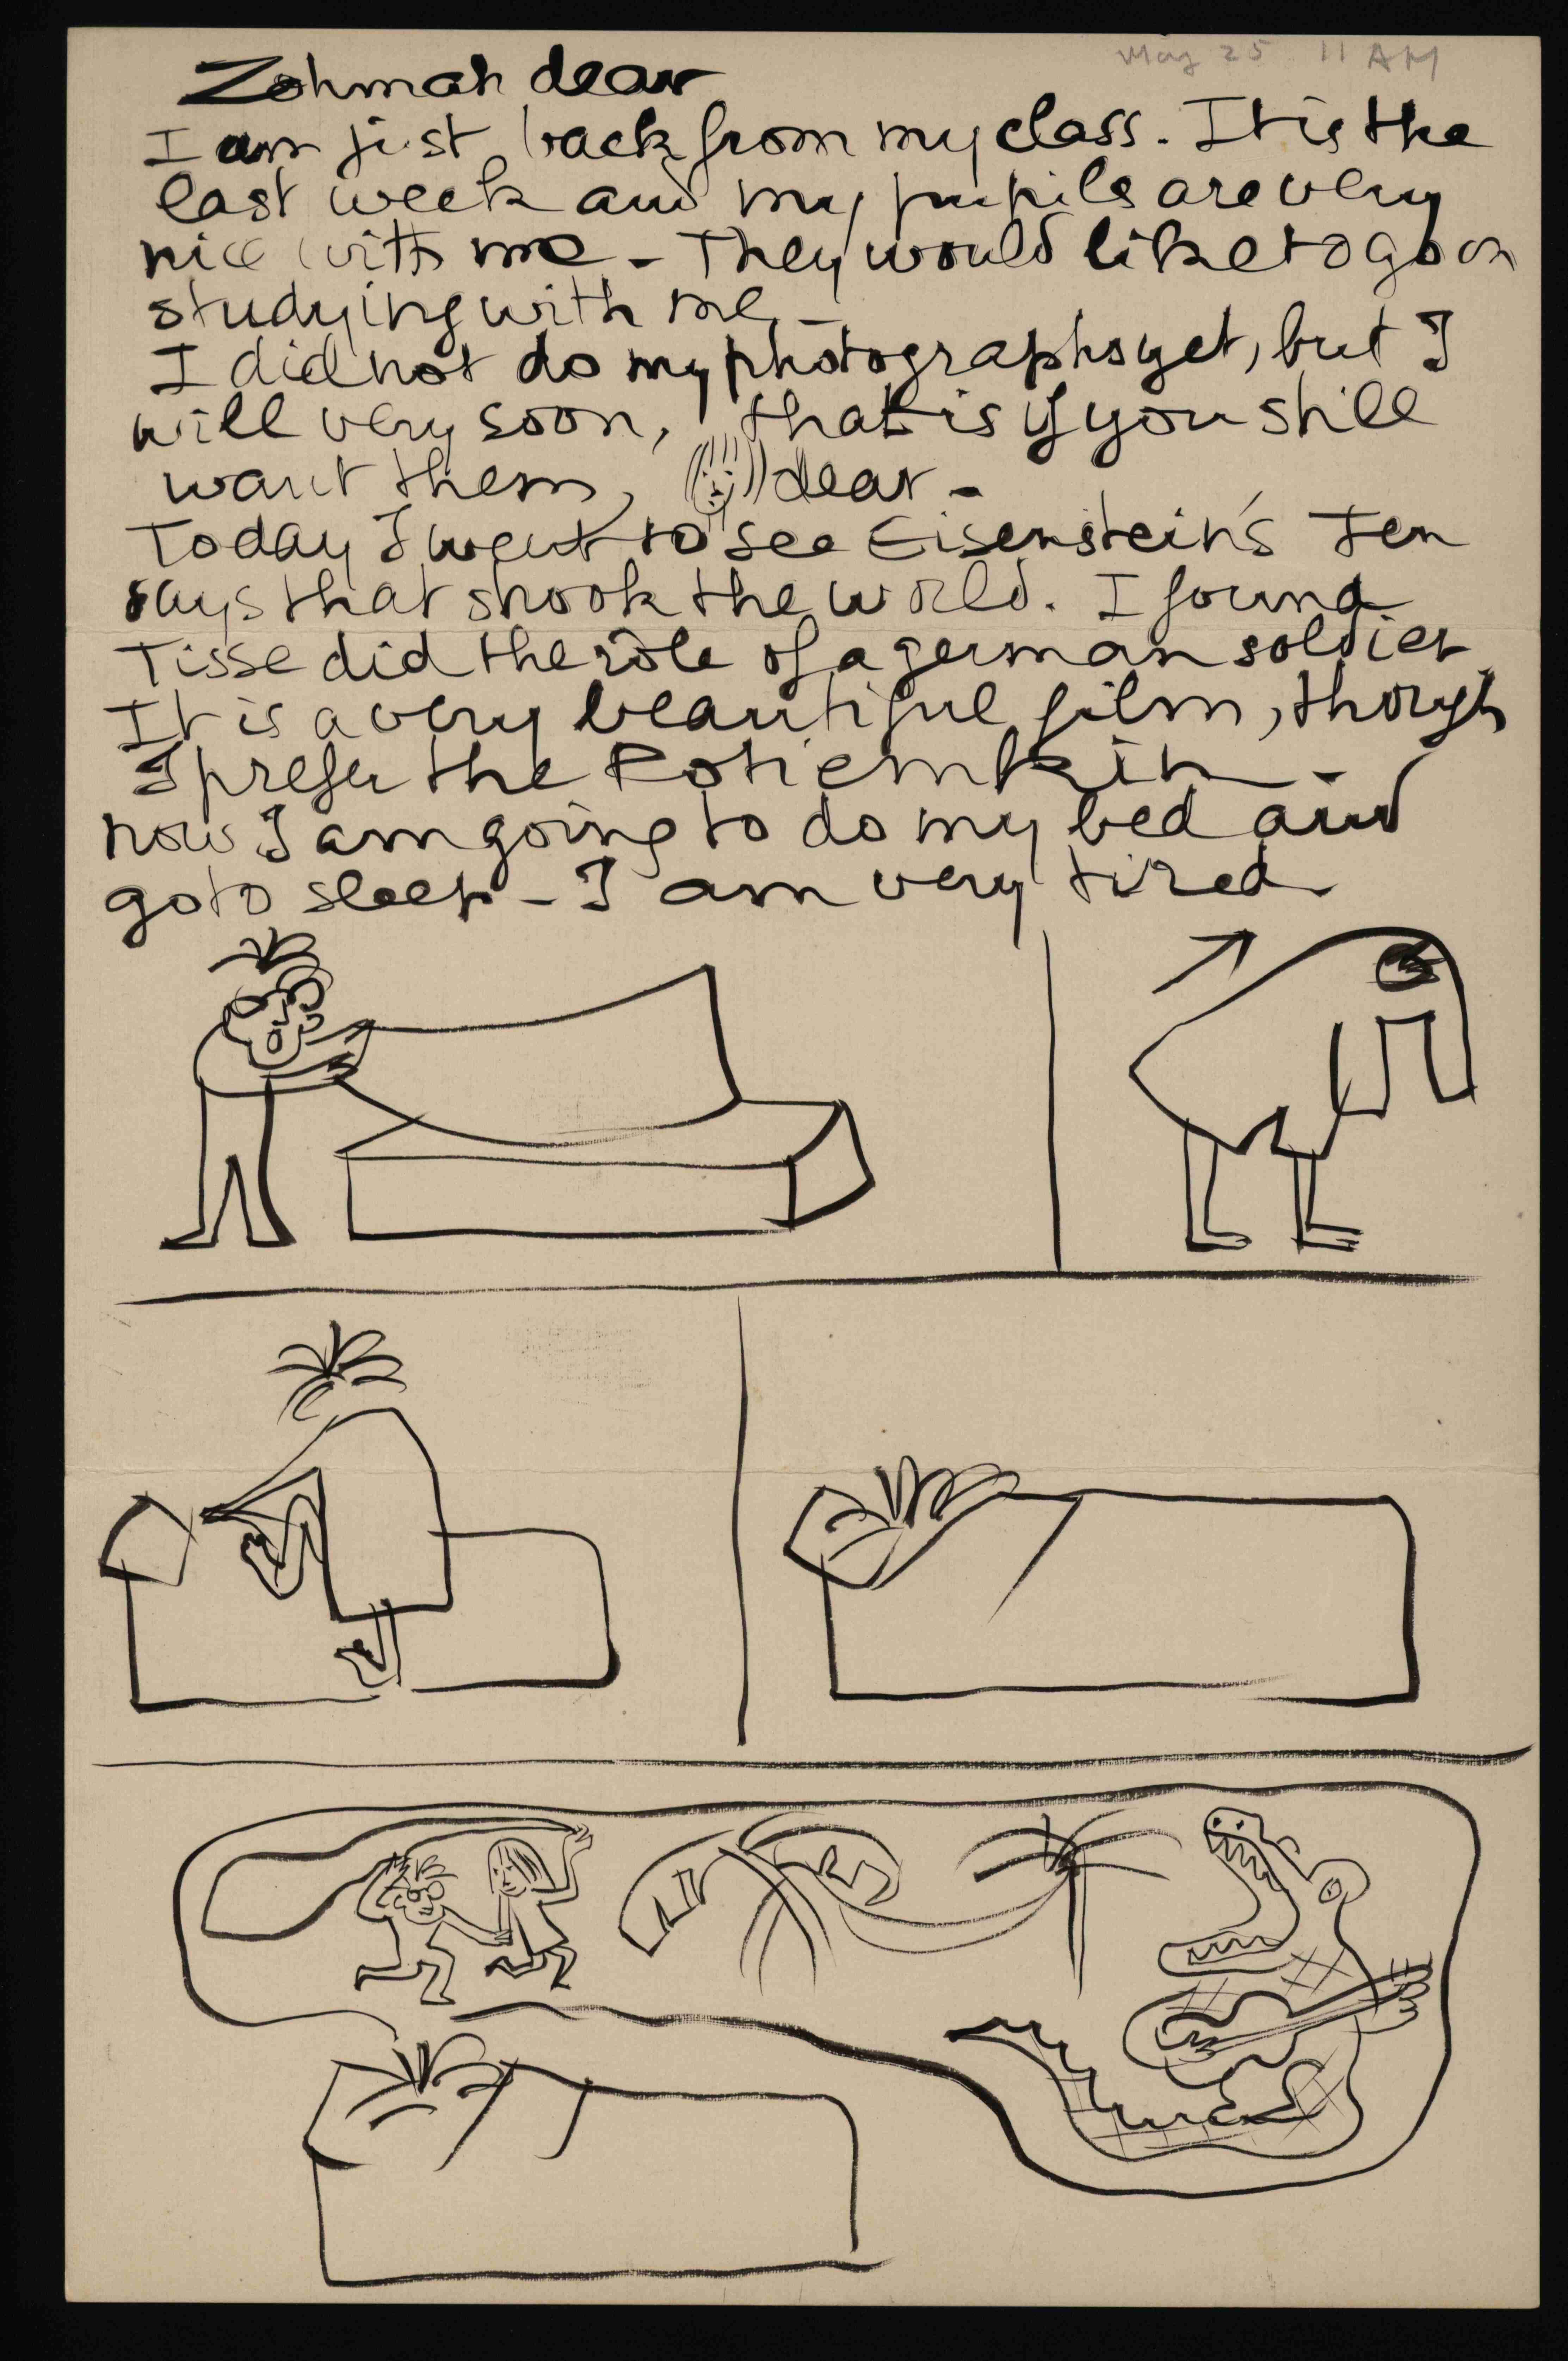 May 25 11 AM
Zohmah dear
I am just back from my class. It is the
last week and my pupils are very
nice with me - They would like to go on
studying with me -
I did not do my photographs yet, but I
will very soon, that is if you still
want them, dear -
Today I went to see Eisenstein's Ten
days that shook the world. I found
Tisse did the rôle of a german soldier
It is a very beautiful film, though
I prefer the Potiemkin -
now I am going to do my bed and
go to sleep - I am very tired